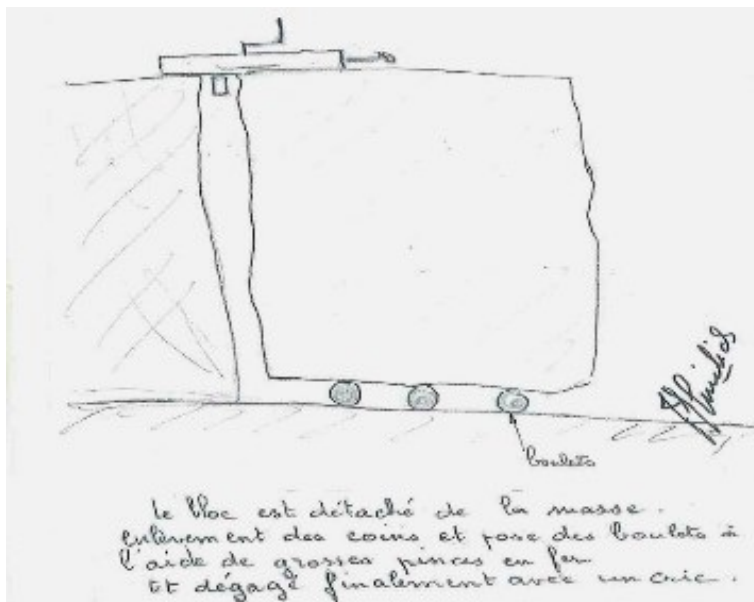 boulets
le bloc est détaché de la masse.
Enlèvement des coins et pose des boulets à
l'aide de grosses pinces en fer
Et dégagé finalement avec un cric.